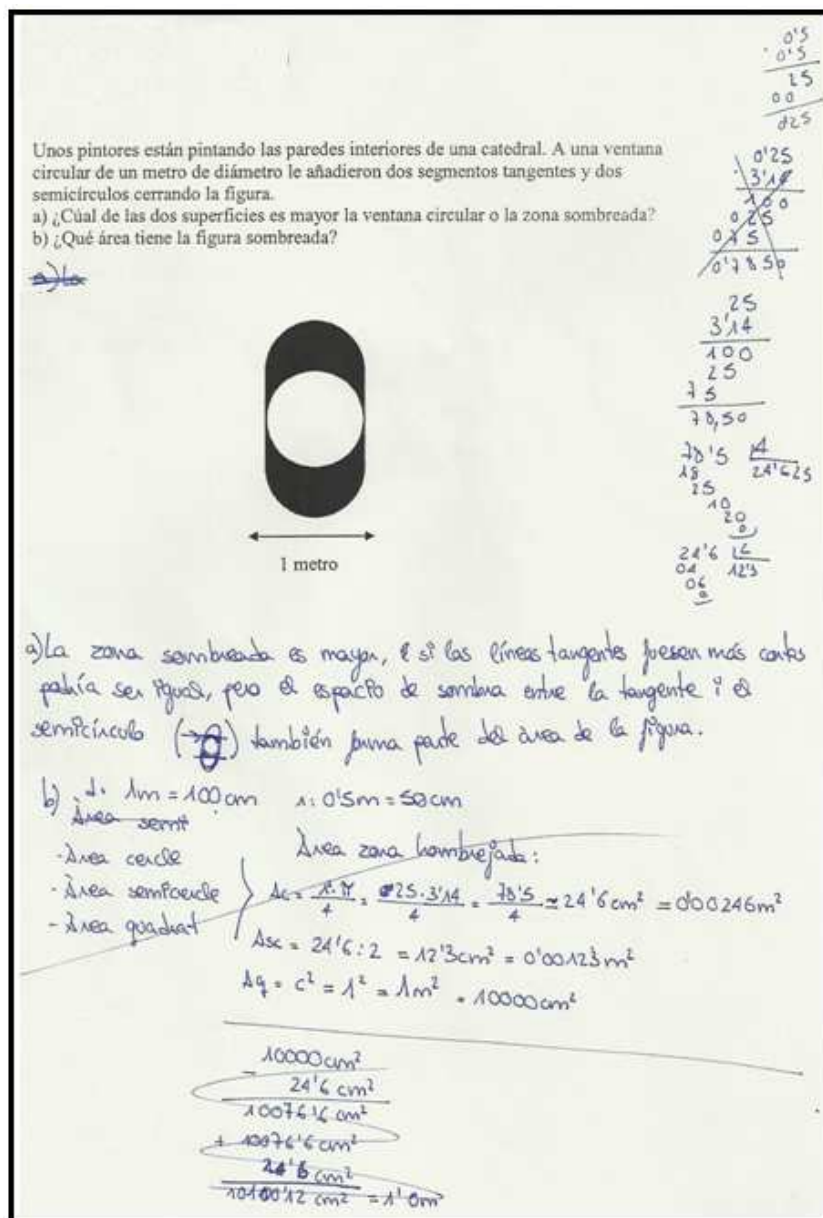 Unos pintores están pintando las paredes interiores de una catedral. A una ventana
circular de un metro de diámetro le añadieron dos segmentos tangentes y dos
semicírculos cerrando la figura.
a) ¿Cúal de las dos superficies es mayor la ventana circular o la zona sombreada?
b) ¿Qué área tiene la figura sombreada?
a) La
0'5
· 0'5
25
00
025
0'25
· 3'14
100
025
075
0'7850
25
3'14
100
25
75
78,50
78'5 4
18
25
10
20
0
24'6
04
06
0
12'3
1 metro
a) La zona sombreada es mayor, si las líneas tangentes fuesen más cortas
podría ser igual, pero el espacio de sombra entre la tangente i el
semicírculo ( ) también forma parte del àrea de la figura.
b) d: 1m = 100 cm r: 0'5m = 50cm
Àrea semi
- Àrea cercle
- Àrea semicercle
- Àrea quadrat
Àrea zona hombrejada:
Ac = = 25·3'14 / 4 = 78'5 / 4 ≃ 24'6 cm² = 0'00246m²
Asc = 24'6 : 2 = 12'3cm² = 0'00123m²
Aq = c² = 1² = 1m² = 10000cm²
- 10000cm²
24'6 cm²
10076'6 cm²
+ 10076'6 cm²
24'6 cm²
= 1'0m²